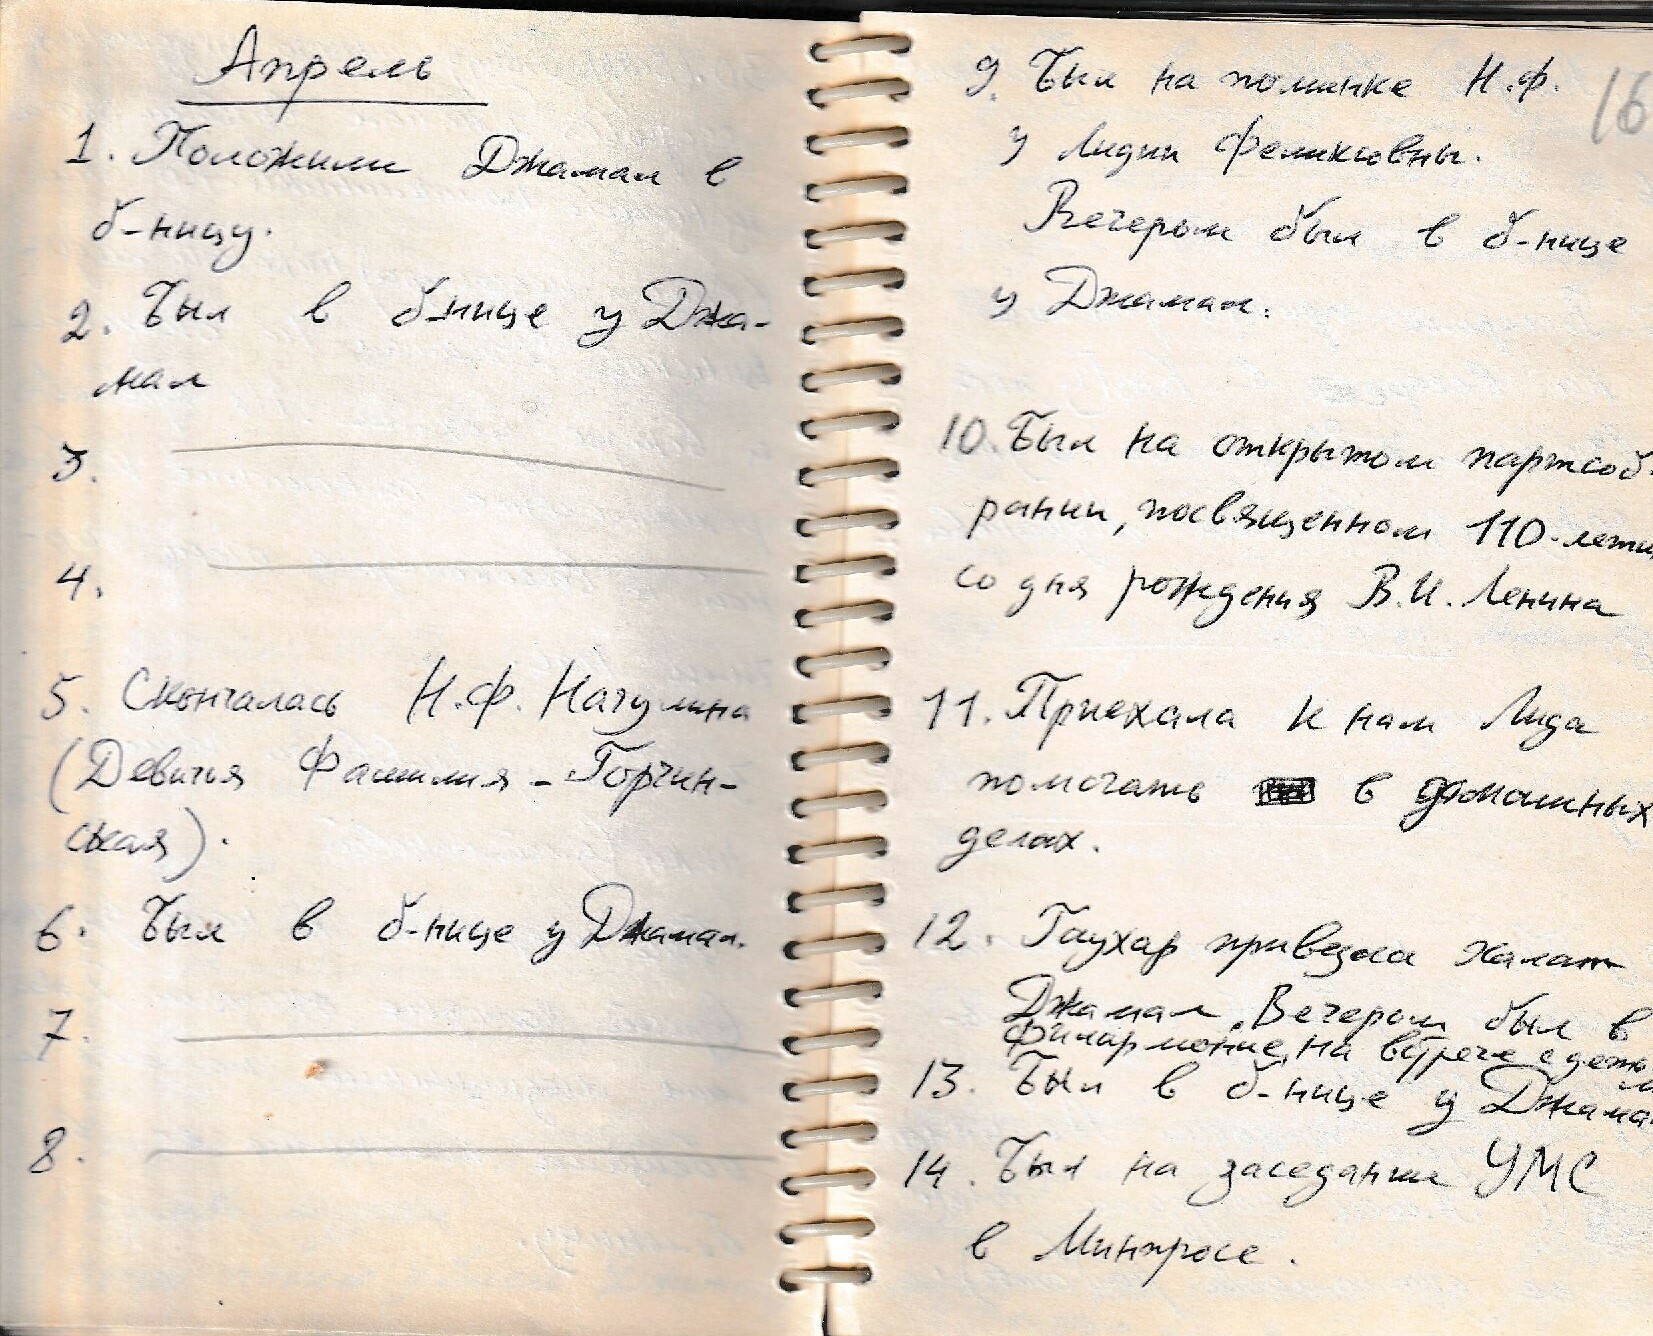 Апрель
1. Положили Джамал в
б-ницу.
2. Был в б-нице у Джа-
мал
3.
4.
5. Скончалась Н.Ф. Начулина
(Девичья Фамилия - Горчин-
ская).
6. Был в б-нице у Джамал.
7.
8.
16
9. Был на поминке Н.Ф.
у Лидии Феликсовны.
Вечером был в б-нице
у Джамал.
10. Был на открытом партсоб-
рании, посвященном 110-летию
со дня рождения В.И. Ленина
11. Приехала к нам Лида
помогать в домашных
делах.
12. Гаухар привезла халат
Джамал. Вечером был в
филармонии, на встрече с деть
ми
13. Был в б-нице у Джамал
14. Был на заседании УМС
в Минпросе.